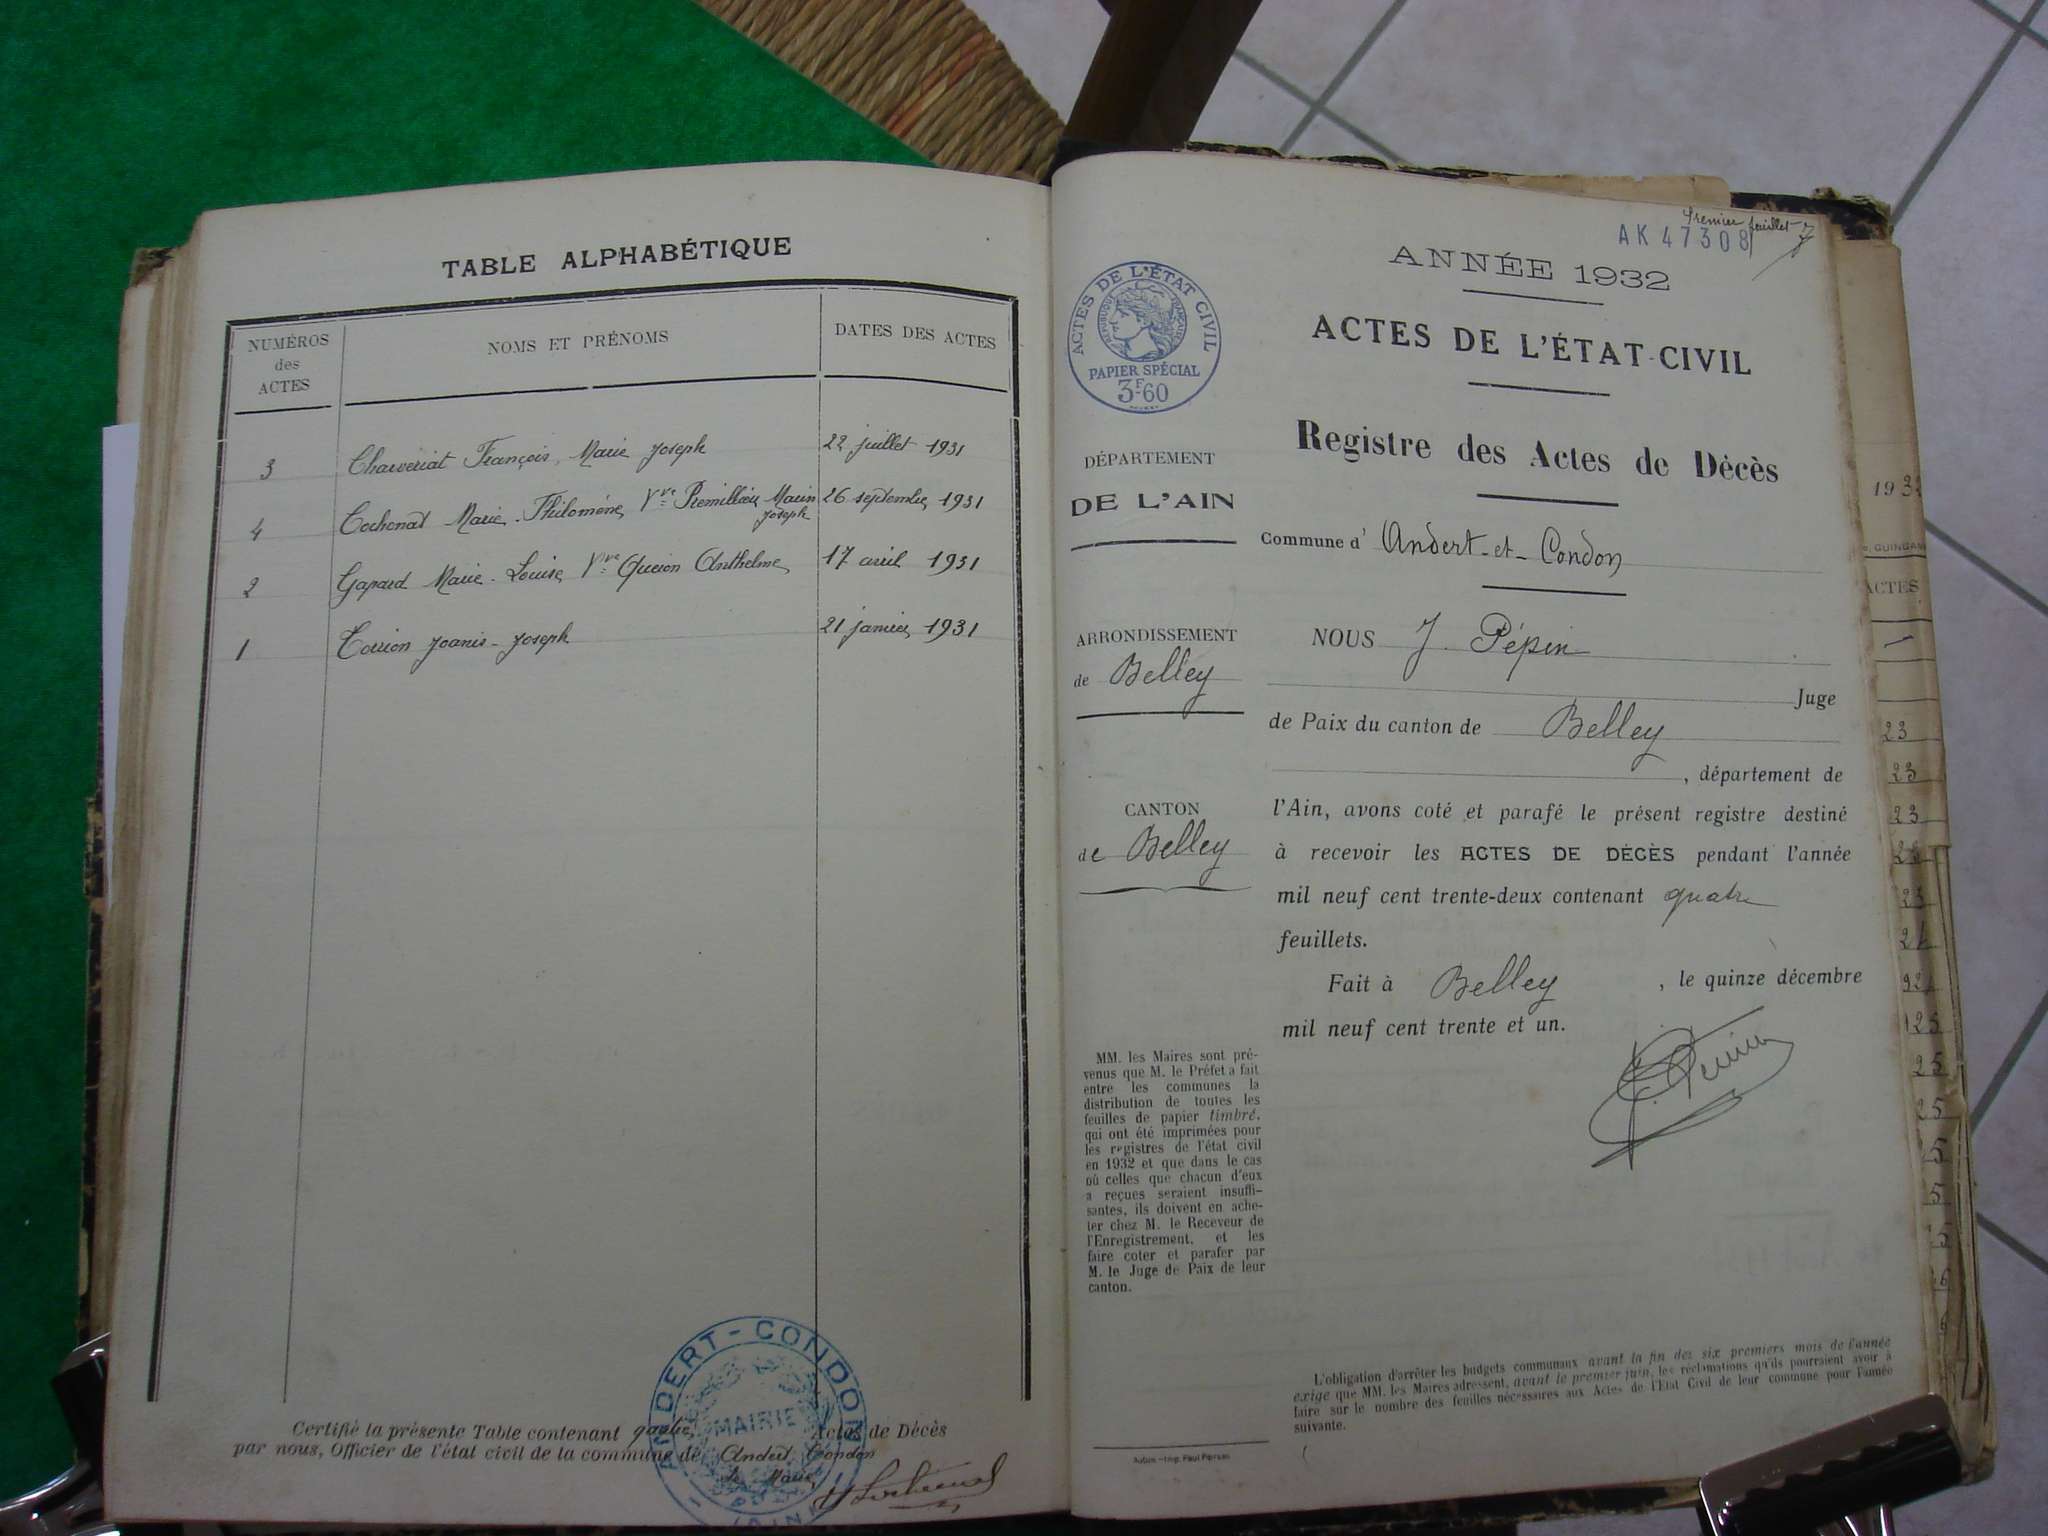 TABLE ALPHABÉTIQUE
NUMÉROS des ACTES
NOMS ET PRÉNOMS
DATES DES ACTES
3 Charveriat François, Marie Joseph 22 juillet 1931
4 Cochonat Marie-Philomène, Vve Premillieu Marin Joseph 26 septembre 1931
2 Gapard Marie-Louise, Vve Anthelme 17 avril 1931
1 Joanis-Joseph 21 janvier 1931
Certifié la présente Table contenant quatre Actes de Décès
par nous, Officier de l'état civil de la commune de Andert-Condon
Le Maire,
ANDERT-CONDON
MAIRIE
AIN
Premier feuillet
AK 47308
ACTES DE L'ÉTAT CIVIL
RÉPUBLIQUE FRANÇAISE
PAPIER SPÉCIAL
3F-60
ANNÉE 1932
ACTES DE L'ÉTAT-CIVIL
Registre des Actes de Décès
DÉPARTEMENT
DE L'AIN
Commune d' Andert-et-Condon
ARRONDISSEMENT
de Belley
CANTON
de Belley
NOUS J. Pépin
Juge
de Paix du canton de Belley
, département de
l'Ain, avons coté et parafé le présent registre destiné
à recevoir les ACTES DE DÉCÈS pendant l'année
mil neuf cent trente-deux contenant quatre
feuillets.
Fait à Belley, le quinze décembre
mil neuf cent trente et un.
MM. les Maires sont pré-
venus que M. le Préfet a fait
entre les communes la
distribution de toutes les
feuilles de papier timbré,
qui ont été imprimées pour
les registres de l'état civil
en 1932 et que dans le cas
où celles que chacun d'eux
a reçues seraient insuffi-
santes, ils doivent en ache-
ter chez M. le Receveur de
l'Enregistrement, et les
faire coter et parafer par
M. le Juge de Paix de leur
canton.
L'obligation d'arrêter les budgets communaux avant la fin des six premiers mois de l'année
exige que MM. les Maires adressent, avant le premier juin, les réclamations qu'ils pourraient avoir à
faire sur le nombre des feuilles nécessaires aux Actes de l'Etat Civil de leur commune pour l'année
suivante.
Imp. Paul
193
ACTES
23
23
23
23
25
25
5
5